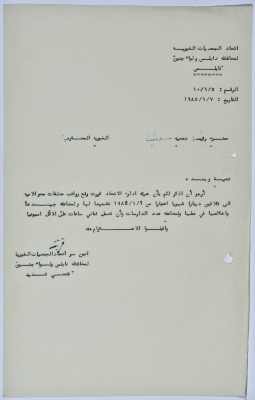 اتحاد الجمعيات الخيرية
لمحافظة نابلس ولواء جنين
نابلس
الرقم : ١٠/٦/٥
التاريخ : ١٩٨٥/١/٧
حضرة رئيسة جمعية الخيرية المحترمين
تحية وبعد ،
أرجو أن اذكر لكم بأن هيئة ادارة الاتحاد قررت رفع رواتب معلمات محو الامية
الى ثلاثين دينارا شهريا اعتبارا من ١٩٨٥/١/٦ تشجيعا لها ولمضاعفة جهدها
واخلاصها في عملها ولمضاعفة عدد الدارسات وأن تعمل ثماني ساعات على الاقل اسبوعيا
واقبلوا الاحترام
امين سر اتحاد الجمعيات الخيرية
لمحافظة نابلس ولواء جنين